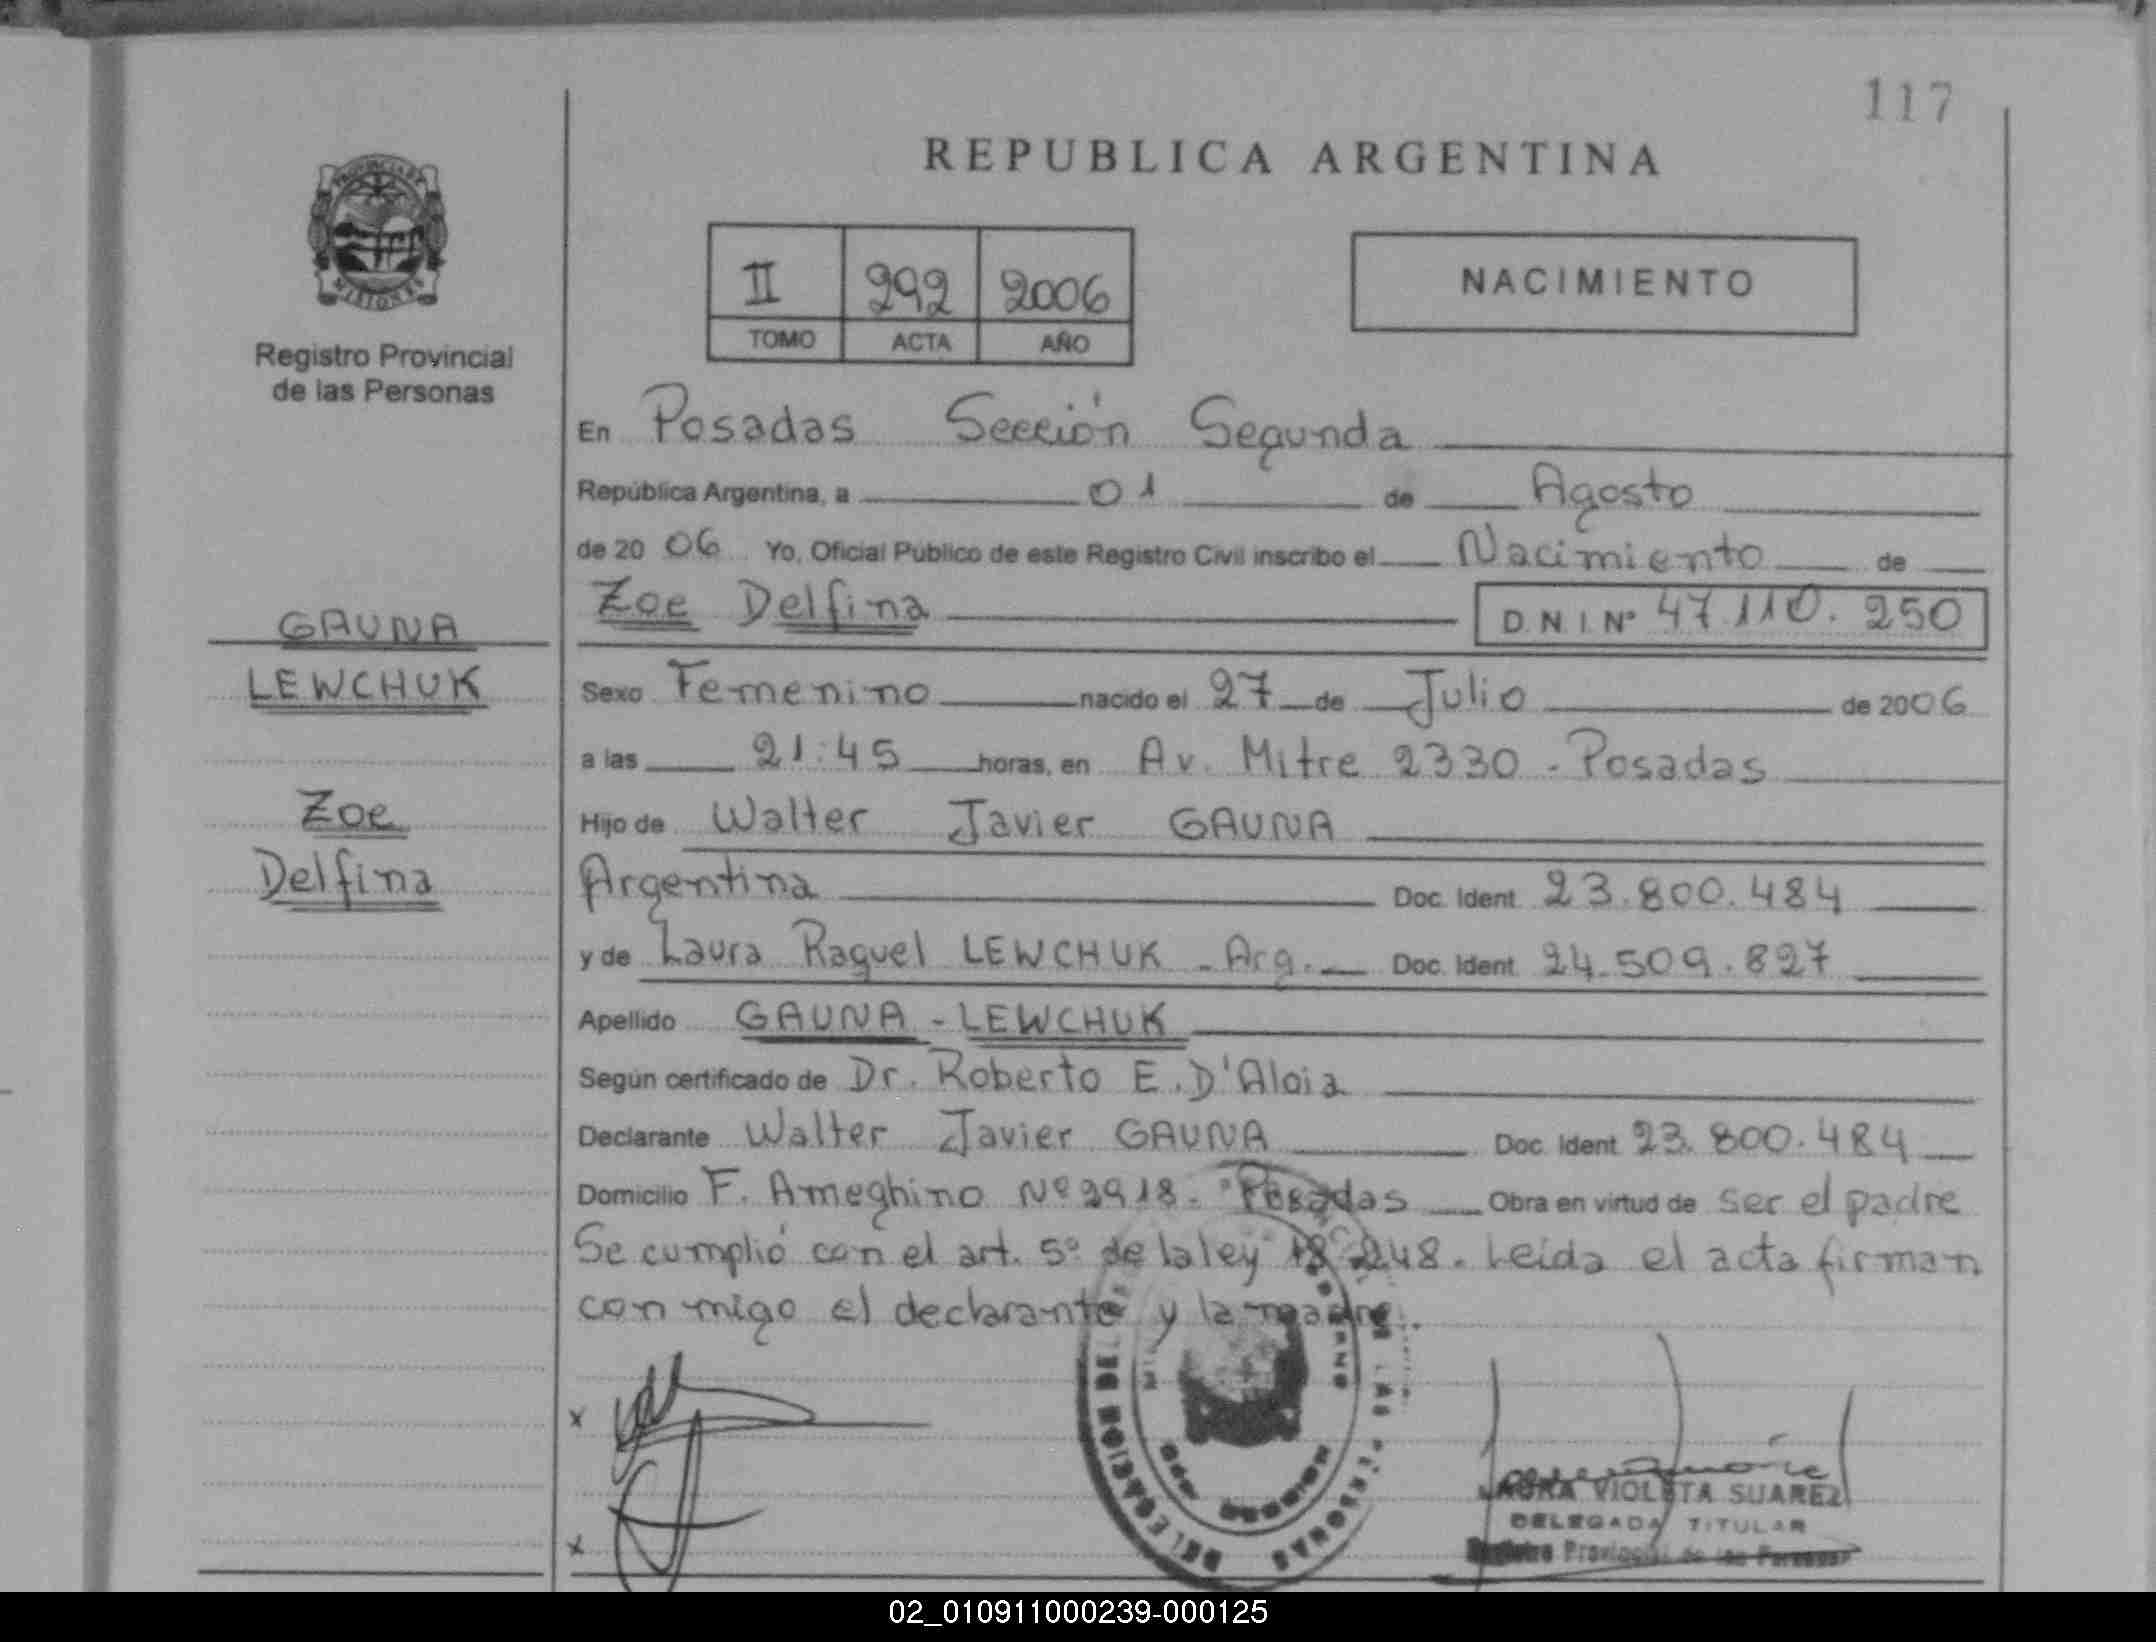 117
REPUBLICA ARGENTINA
PROVINCIA DE
MISIONES
Registro Provincial
de las Personas
II 292 2006
TOMO ACTA AÑO
NACIMIENTO
En Posadas Sección Segunda
República Argentina, a 01 de Agosto
de 2006 Yo, Oficial Público de este Registro Civil inscribo el Nacimiento de
Zoe Delfina D.N.I. Nº 47.110.250
GAUNA
LEWCHUK
Zoe
Delfina
Sexo Femenino nacido el 27 de Julio de 2006
a las 21:45 horas, en Av. Mitre 2330 - Posadas
Hijo de Walter Javier GAUNA
Argentina Doc. Ident. 23.800.484
y de Laura Raquel LEWCHUK - Arg. Doc. Ident. 24.509.827
Apellido GAUNA - LEWCHUK
Según certificado de Dr. Roberto E. D'Aloia
Declarante Walter Javier GAUNA Doc. Ident. 23.800.484
Domicilio F. Ameghino Nº 2918 - Posadas Obra en virtud de ser el padre
Se cumplió con el art. 5º de la ley 18.248. Leída el acta firman
conmigo el declarante y la madre.
x
x
DELEGACION DE LAS PERSONAS
LAURA VIOLETA SUAREZ
DELEGADA TITULAR
Registro Provincial de las Personas
02_010911000239-000125